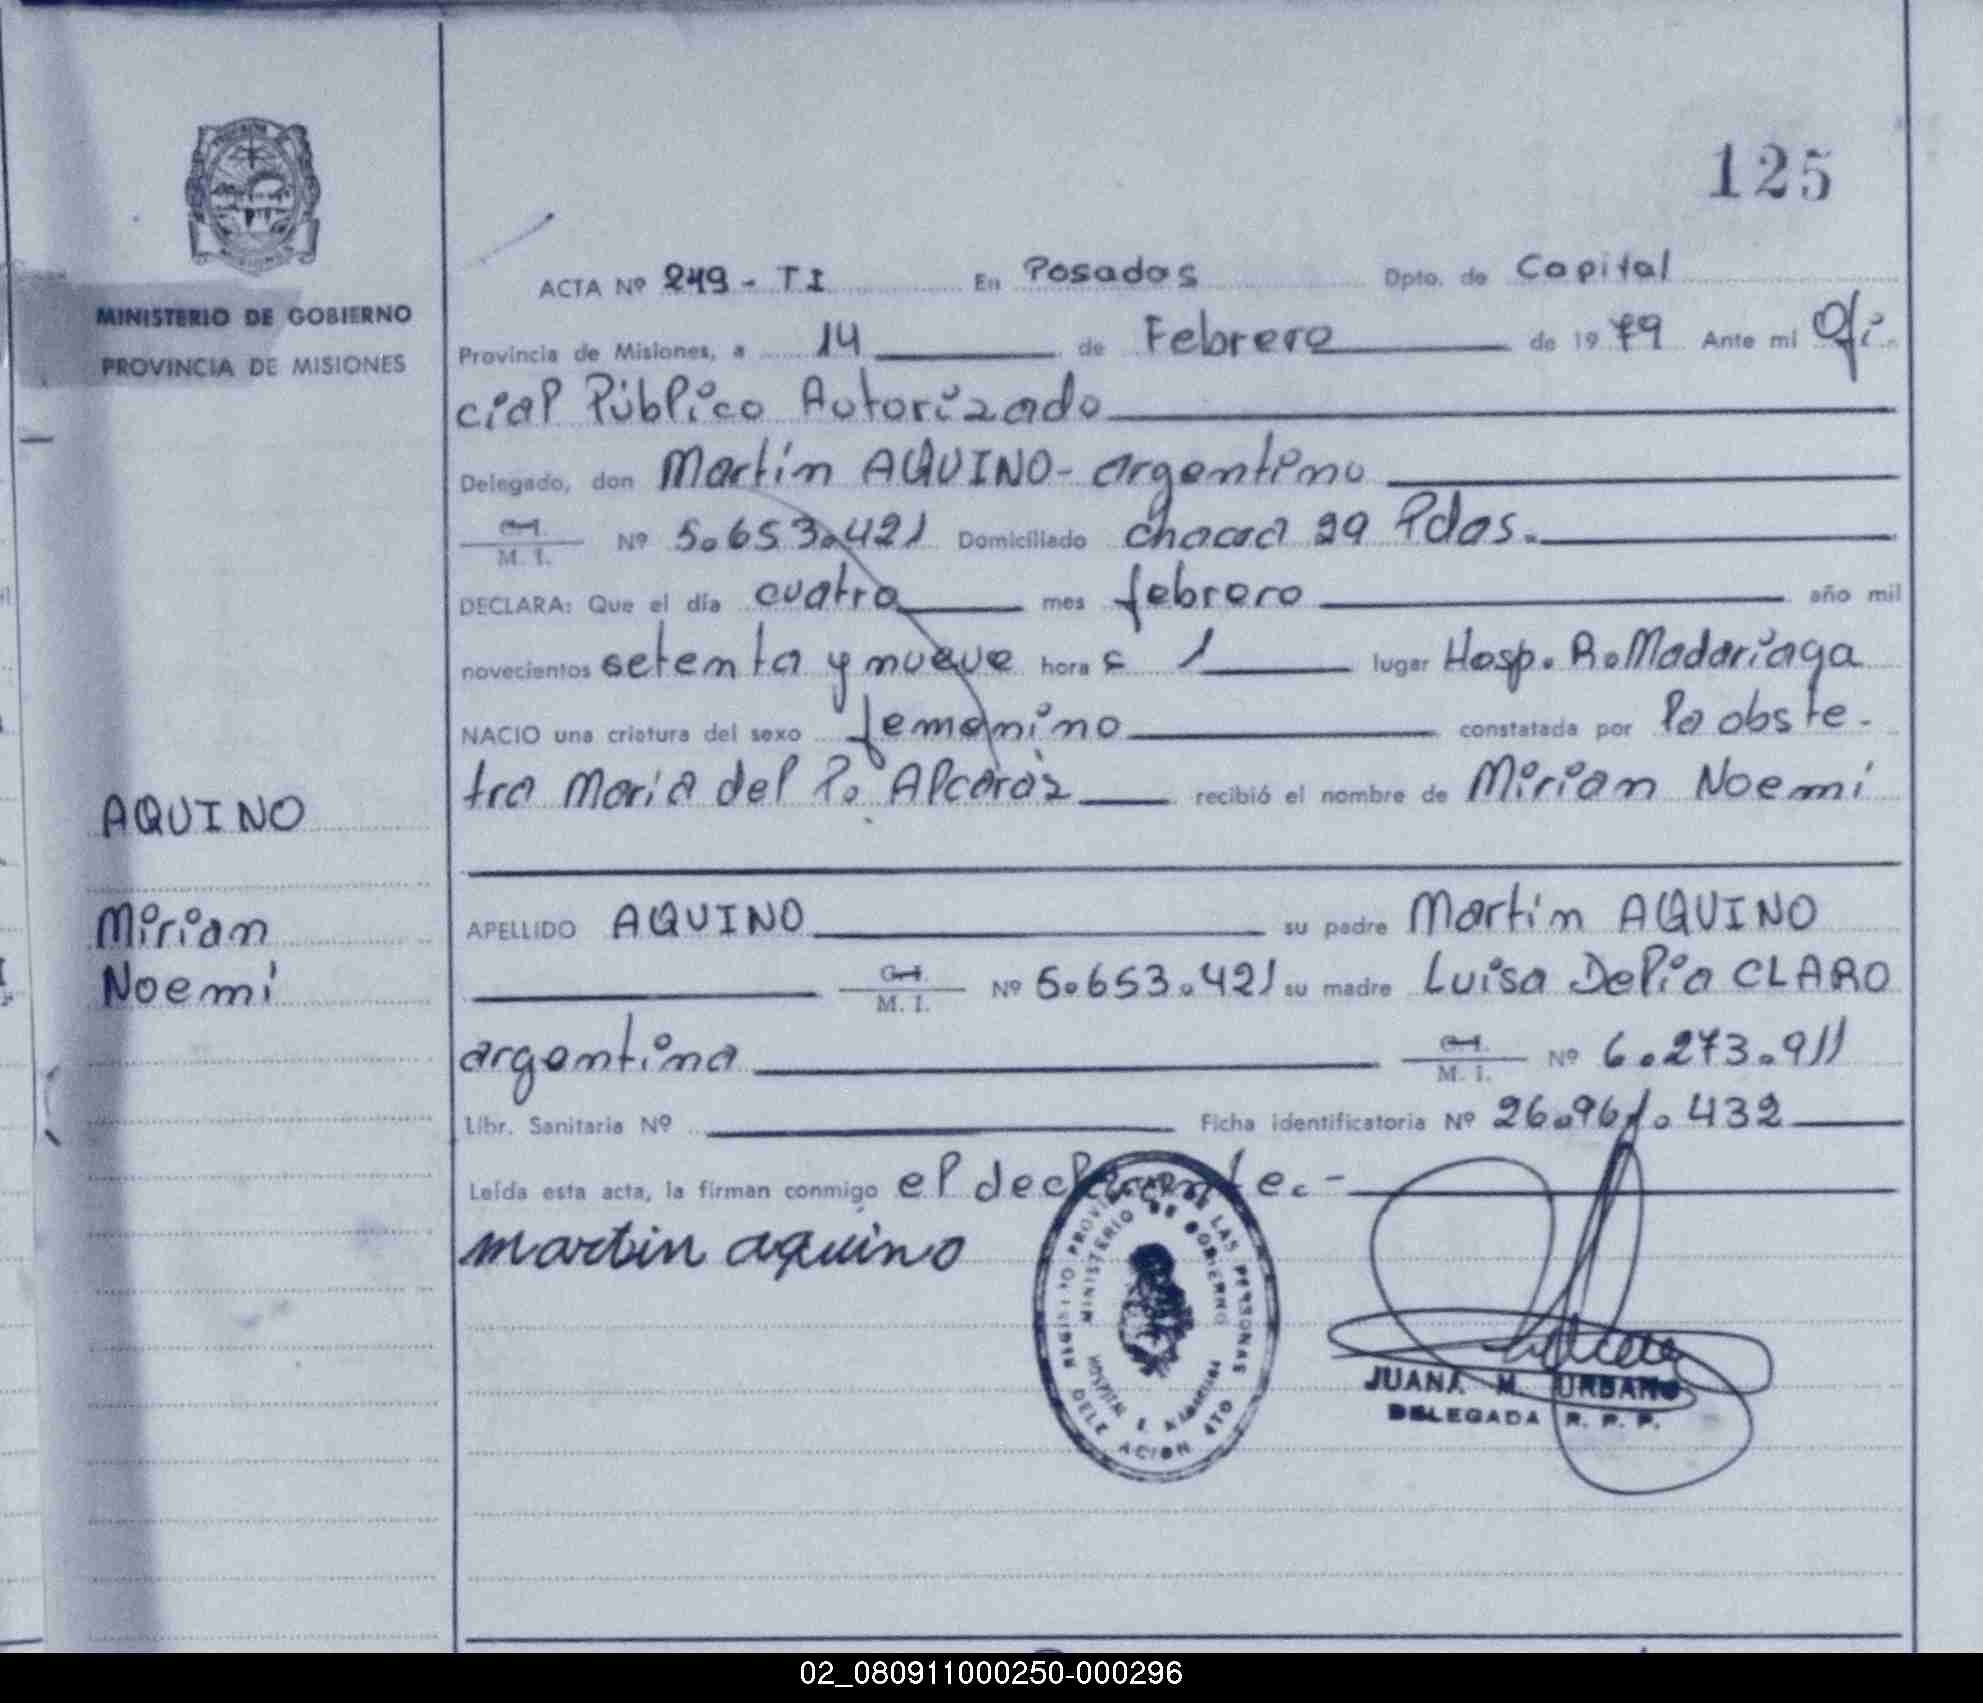 125
MINISTERIO DE GOBIERNO
PROVINCIA DE MISIONES
ACTA Nº 249 - T I En Posadas Dpto. de Capital
Provincia de Misiones, a 14 de Febrero de 1979 Ante mi Ofi-
cial Público Autorizado
Delegado, don Martín AQUINO - argentino
C.I. M. I. Nº 5.653.421 Domiciliado chacra 29 Pdas.
DECLARA: Que el día cuatro mes febrero año mil
novecientos setenta y nueve hora s 1 lugar Hosp. R. Madariaga
NACIO una criatura del sexo femenino constatada por la obste-
tra María del P. Alcaráz recibió el nombre de Mirian Noemí
AQUINO
Mirian
Noemí
APELLIDO AQUINO su padre Martín AQUINO
C.I. M. I. Nº 5.653.421 su madre Luisa Delia CLARO
argentina C.I. M. I. Nº 6.273.911
Libr. Sanitaria Nº Ficha identificatoria Nº 26.961.432
Leída esta acta, la firman conmigo el declarante.-
martin aquino
REGISTRO PROVINCIAL DE LAS PERSONAS
MINISTERIO DE GOBIERNO
HOSPITAL R MADARIAGA
DELEGACION 4TO
JUANA M. URBANO
DELEGADA R. P. P.
02_080911000250-000296